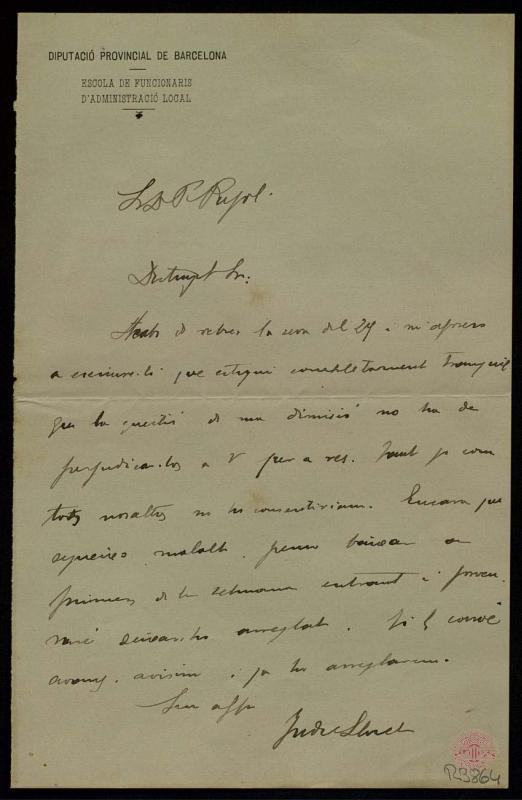 DIPUTACIÓ PROVINCIAL DE BARCELONA
ESCOLA DE FUNCIONARIS
D'ADMINISTRACIÓ LOCAL
Sr D P Pujol.
Distingit Sr:
Acabo de rebrer la seva del 29 i m'apresso
a escriure-li que estigui completament tranquil
que la questió de ma dimisió no ha de
perjudicar-los a V per a res. Tant jo com
tots nosaltres no ho consentiriam. Encara que
segueixo malalt, penso baixar a
primers de la setmana entrant i procu
raré deixar-ho arreglat. Si li convé
avans, avisim i ja ho arreglarem.
Seu affm
R3864